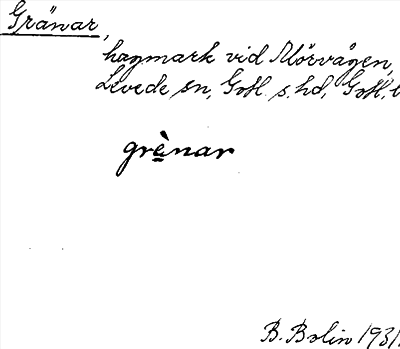 Gränar,
hagmark vid Mörvägen,
Levede sn, Gotl. s. hd, Gotl. l
grènar
B. Bolin 1931.